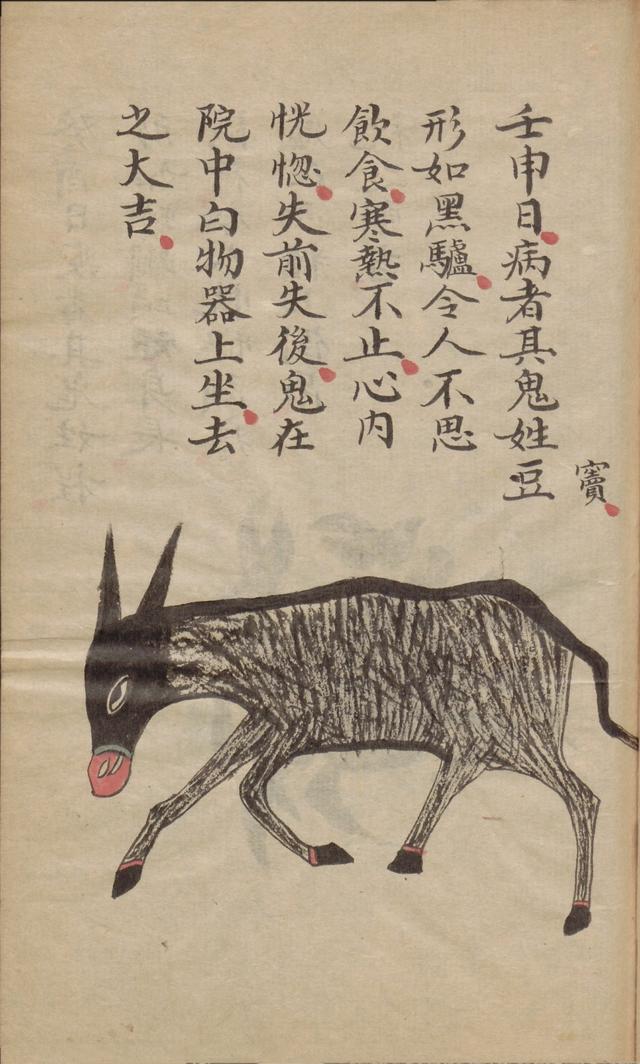 壬申日病者其鬼姓豆
竇
形如黑驢令人不思
飲食寒熱不止心內
恍惚失前失後鬼在
院中白物器上坐去
之大吉